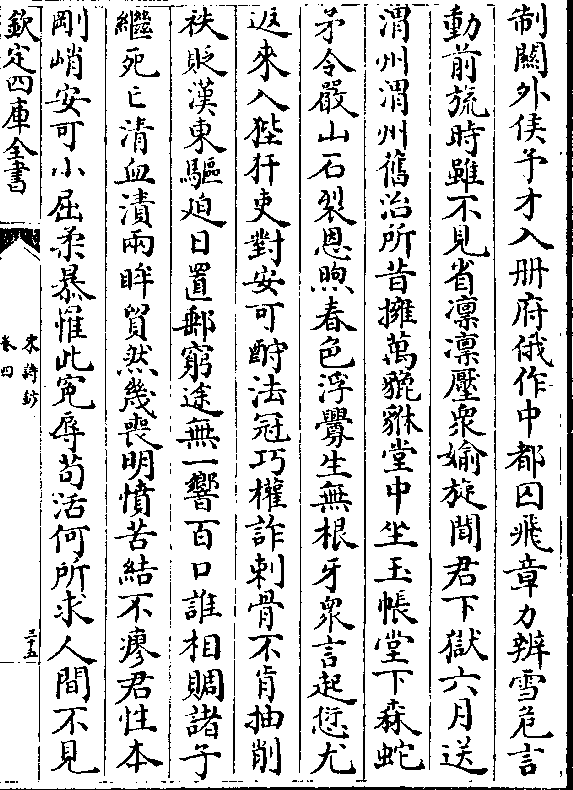 制闗外侯予才入册府俄作中都囚飛章力辨雪危言
動前旒時雖不見省凛凛壓衆媮旋聞君下獄六月送
渭州渭州舊治所昔擁萬貔貅堂中坐玉帳堂下森蛇
矛令嚴山石裂恩煦春色浮釁生無根牙衆言起愆尤
返來入狴犴吏對安可酧法冠巧權詐刺骨不肯抽削
袟貶漢東驅廹日置郵窮途無一響百口誰相賙諸子
繼死亡清血漬兩眸貿然幾喪明憤苦結不瘳君性本
剛峭安可小屈柔暴罹此冤辱苟活何所求人間不見
欽定四庫全書
宋詩鈔
卷四
三十五